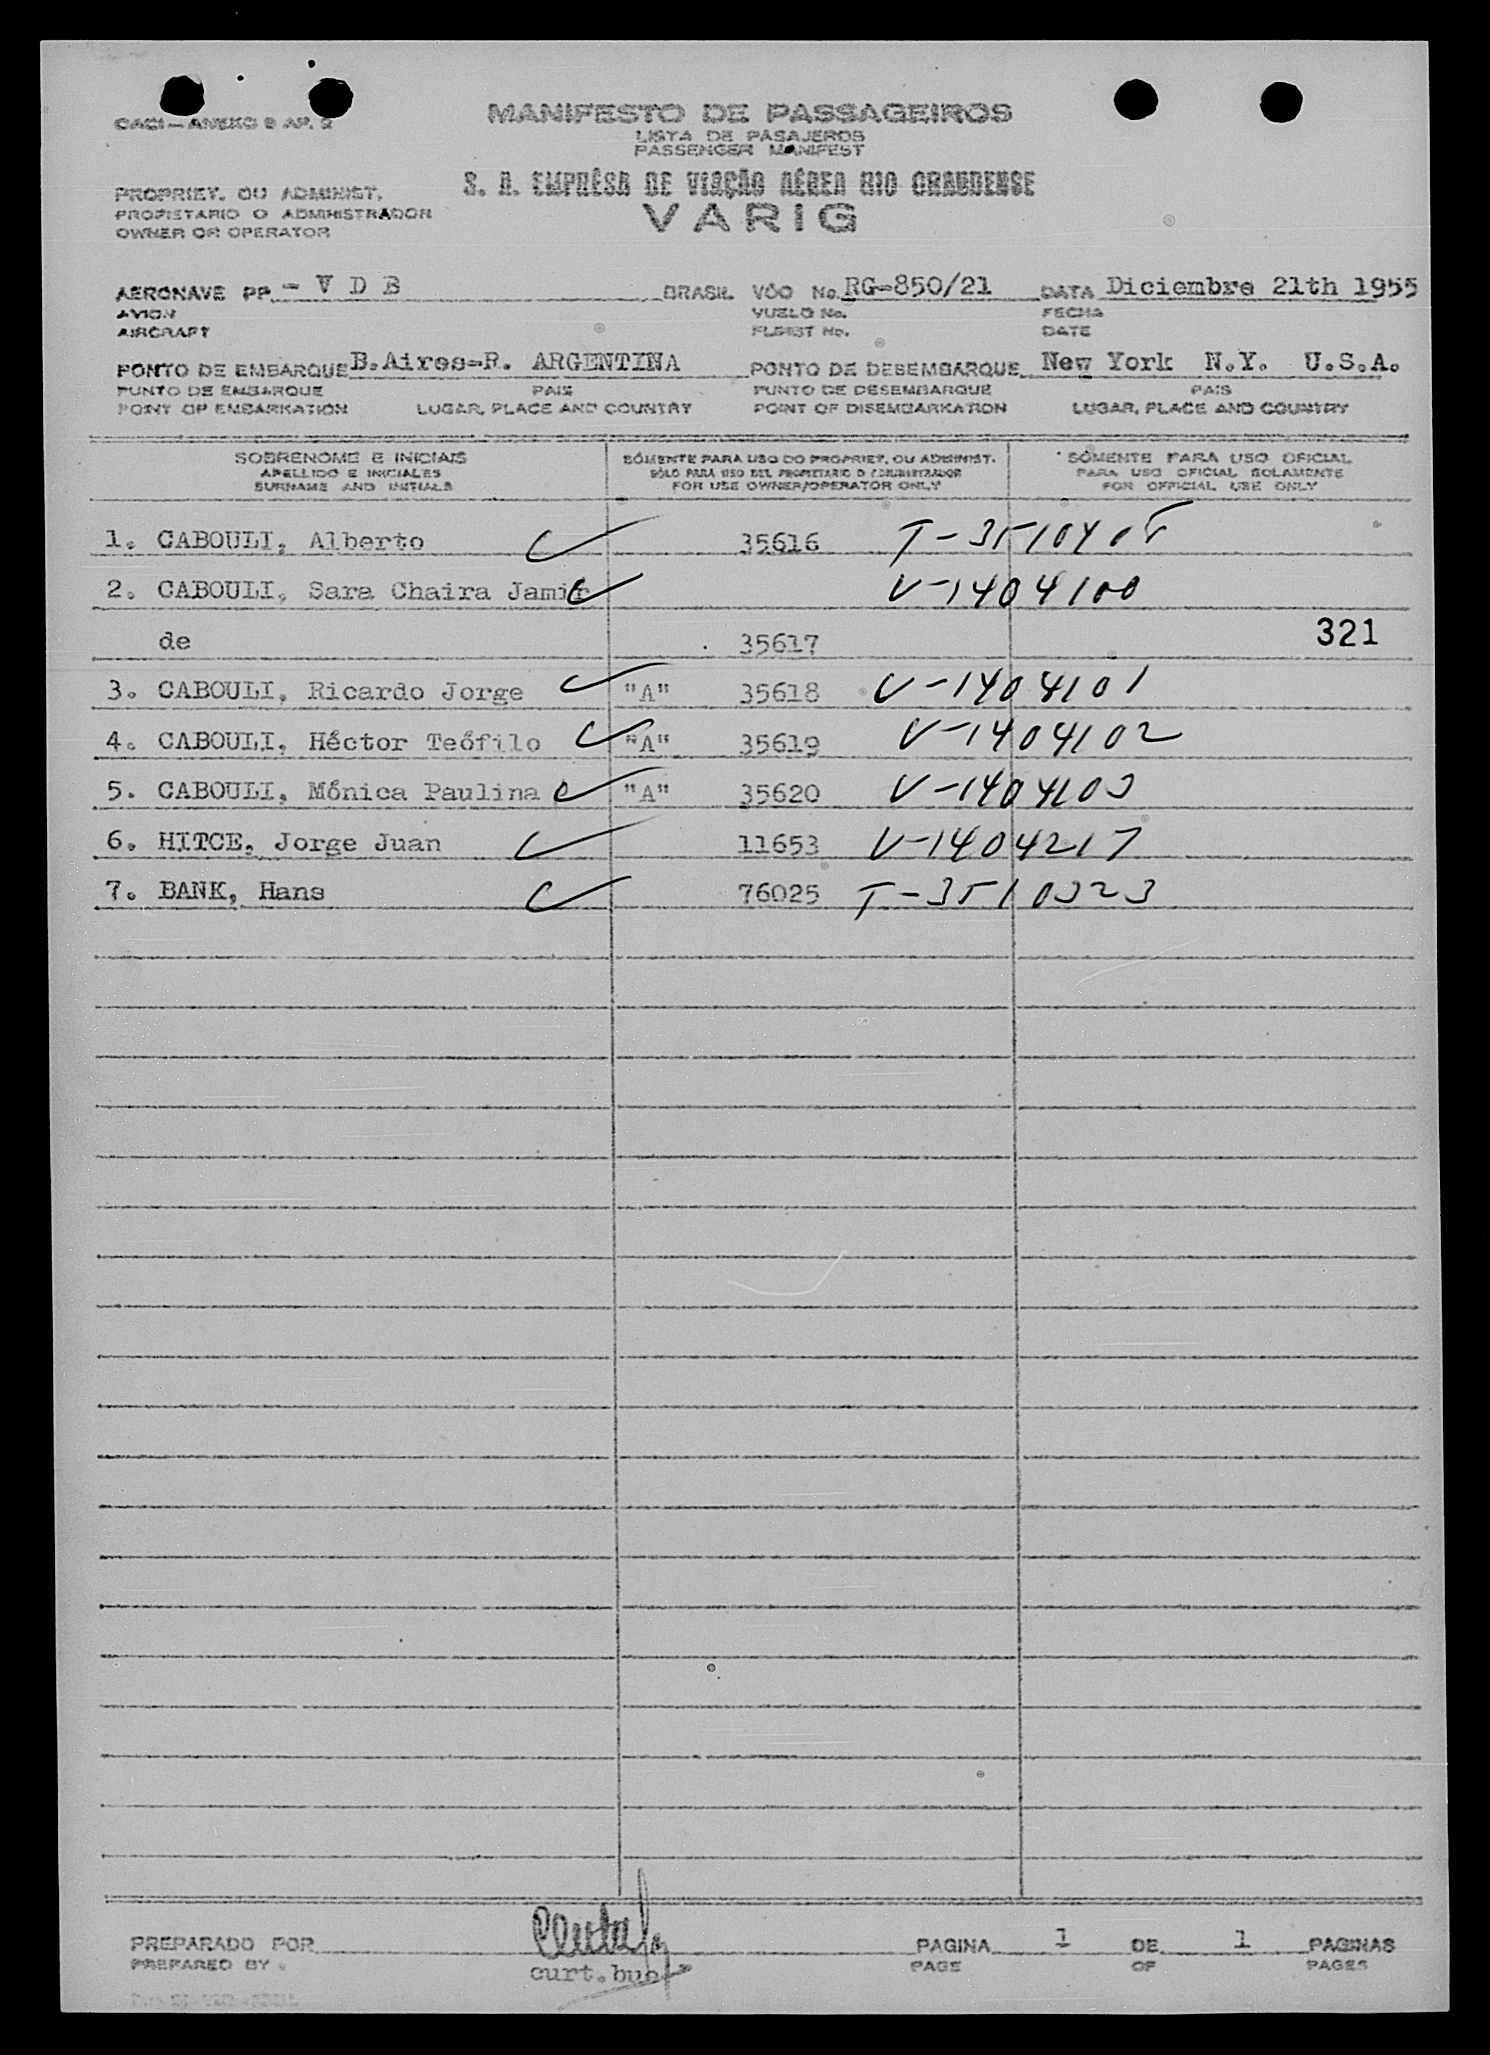 OACI — ANEXO 9 AP. 2
MANIFESTO DE PASSAGEIROS
LISTA DE PASAJEROS
PASSENGER MANIFEST
PROPRIET. OU ADMINIST.
PROPIETARIO O ADMINISTRADOR
OWNER OR OPERATOR
S. A. EMPRÊSA DE VIAÇÃO AÉREA RIO GRANDENSE
VARIG
AERONAVE PP - V D B BRASIL VÔO No. RG-850/21 DATA Diciembre 21th 1955
AVION VUELO No. FECHA
AIRCRAFT FLIGHT No. DATE
PONTO DE EMBARQUE B.Aires-R. ARGENTINA PONTO DE DESEMBARQUE New York N.Y. U.S.A.
PUNTO DE EMBARQUE PAIS PUNTO DE DESEMBARQUE PAIS
POINT OF EMBARKATION LUGAR, PLACE AND COUNTRY POINT OF DISEMBARKATION LUGAR, PLACE AND COUNTRY
SOBRENOME E INICIAIS SÓMENTE PARA USO DO PROPRIET. OU ADMINIST. SÓMENTE PARA USO OFICIAL
APELLIDO E INICIALES SÓLO PARA USO DEL PROPIETARIO O ADMINISTRADOR PARA USO OFICIAL SOLAMENTE
SURNAME AND INITIALS FOR USE OWNER/OPERATOR ONLY FOR OFFICIAL USE ONLY
1. CABOULI, Alberto 35616 T-3510405
2. CABOULI, Sara Chaira Jamir V-1404100
de 35617 321
3. CABOULI, Ricardo Jorge "A" 35618 V-1404101
4. CABOULI, Héctor Teófilo "A" 35619 V-1404102
5. CABOULI, Mónica Paulina "A" 35620 V-1404103
6. HITCE, Jorge Juan 11653 V-1404217
7. BANK, Hans 76025 T-3510323
PREPARADO POR PAGINA 1 DE 1 PAGINAS
PREPARED BY curt.bue PAGE OF PAGES